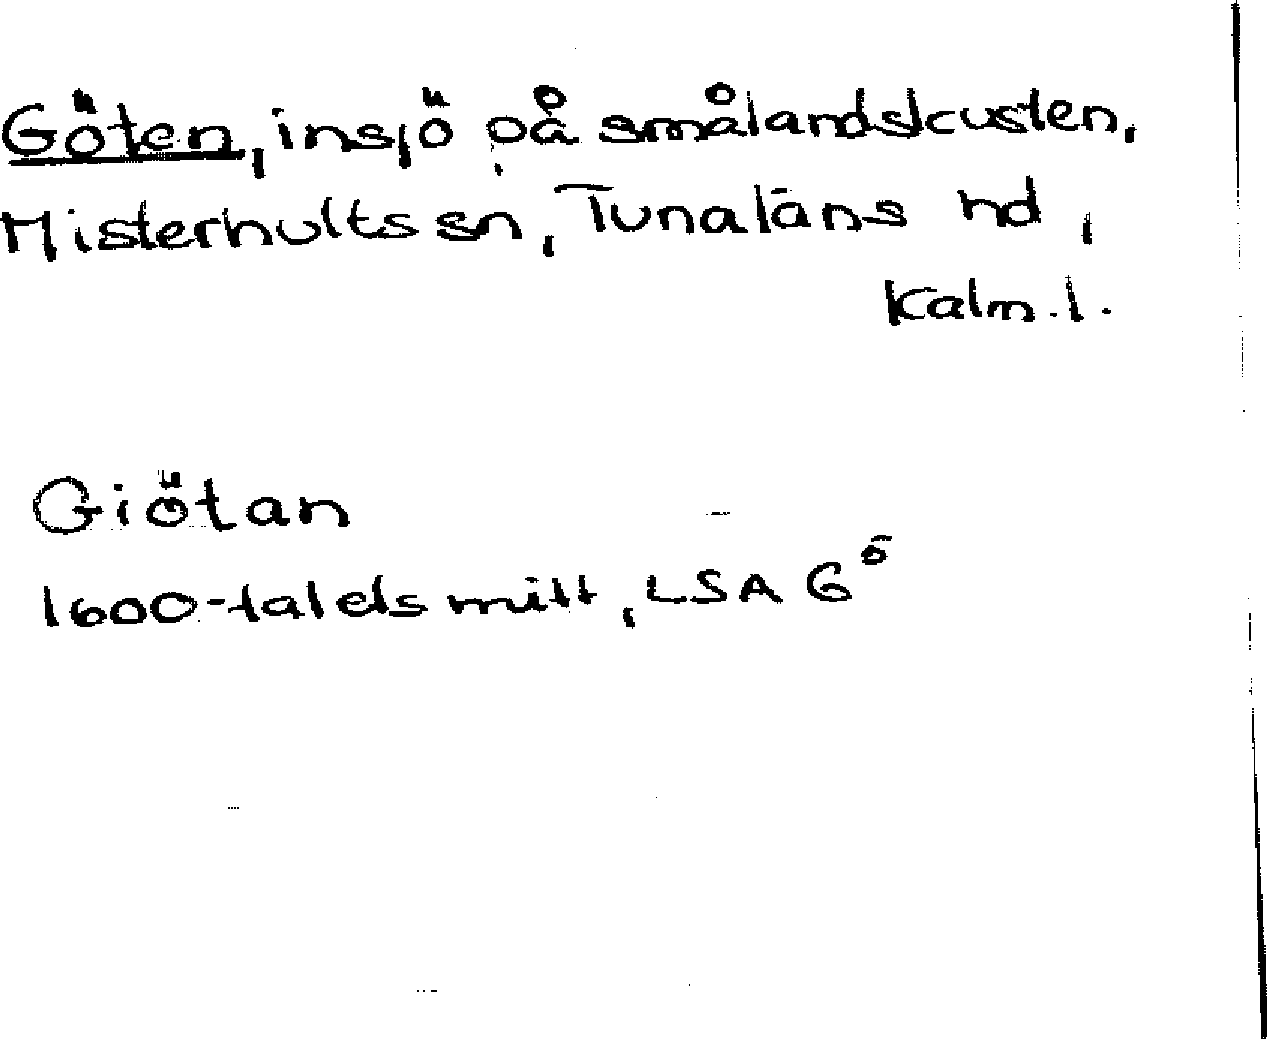 Göten, insjö på smålandskusten,
Misterhults sn, Tunaläns hd,
Kalm. l.
Giötan
1600-talets mitt, LSA G⁵